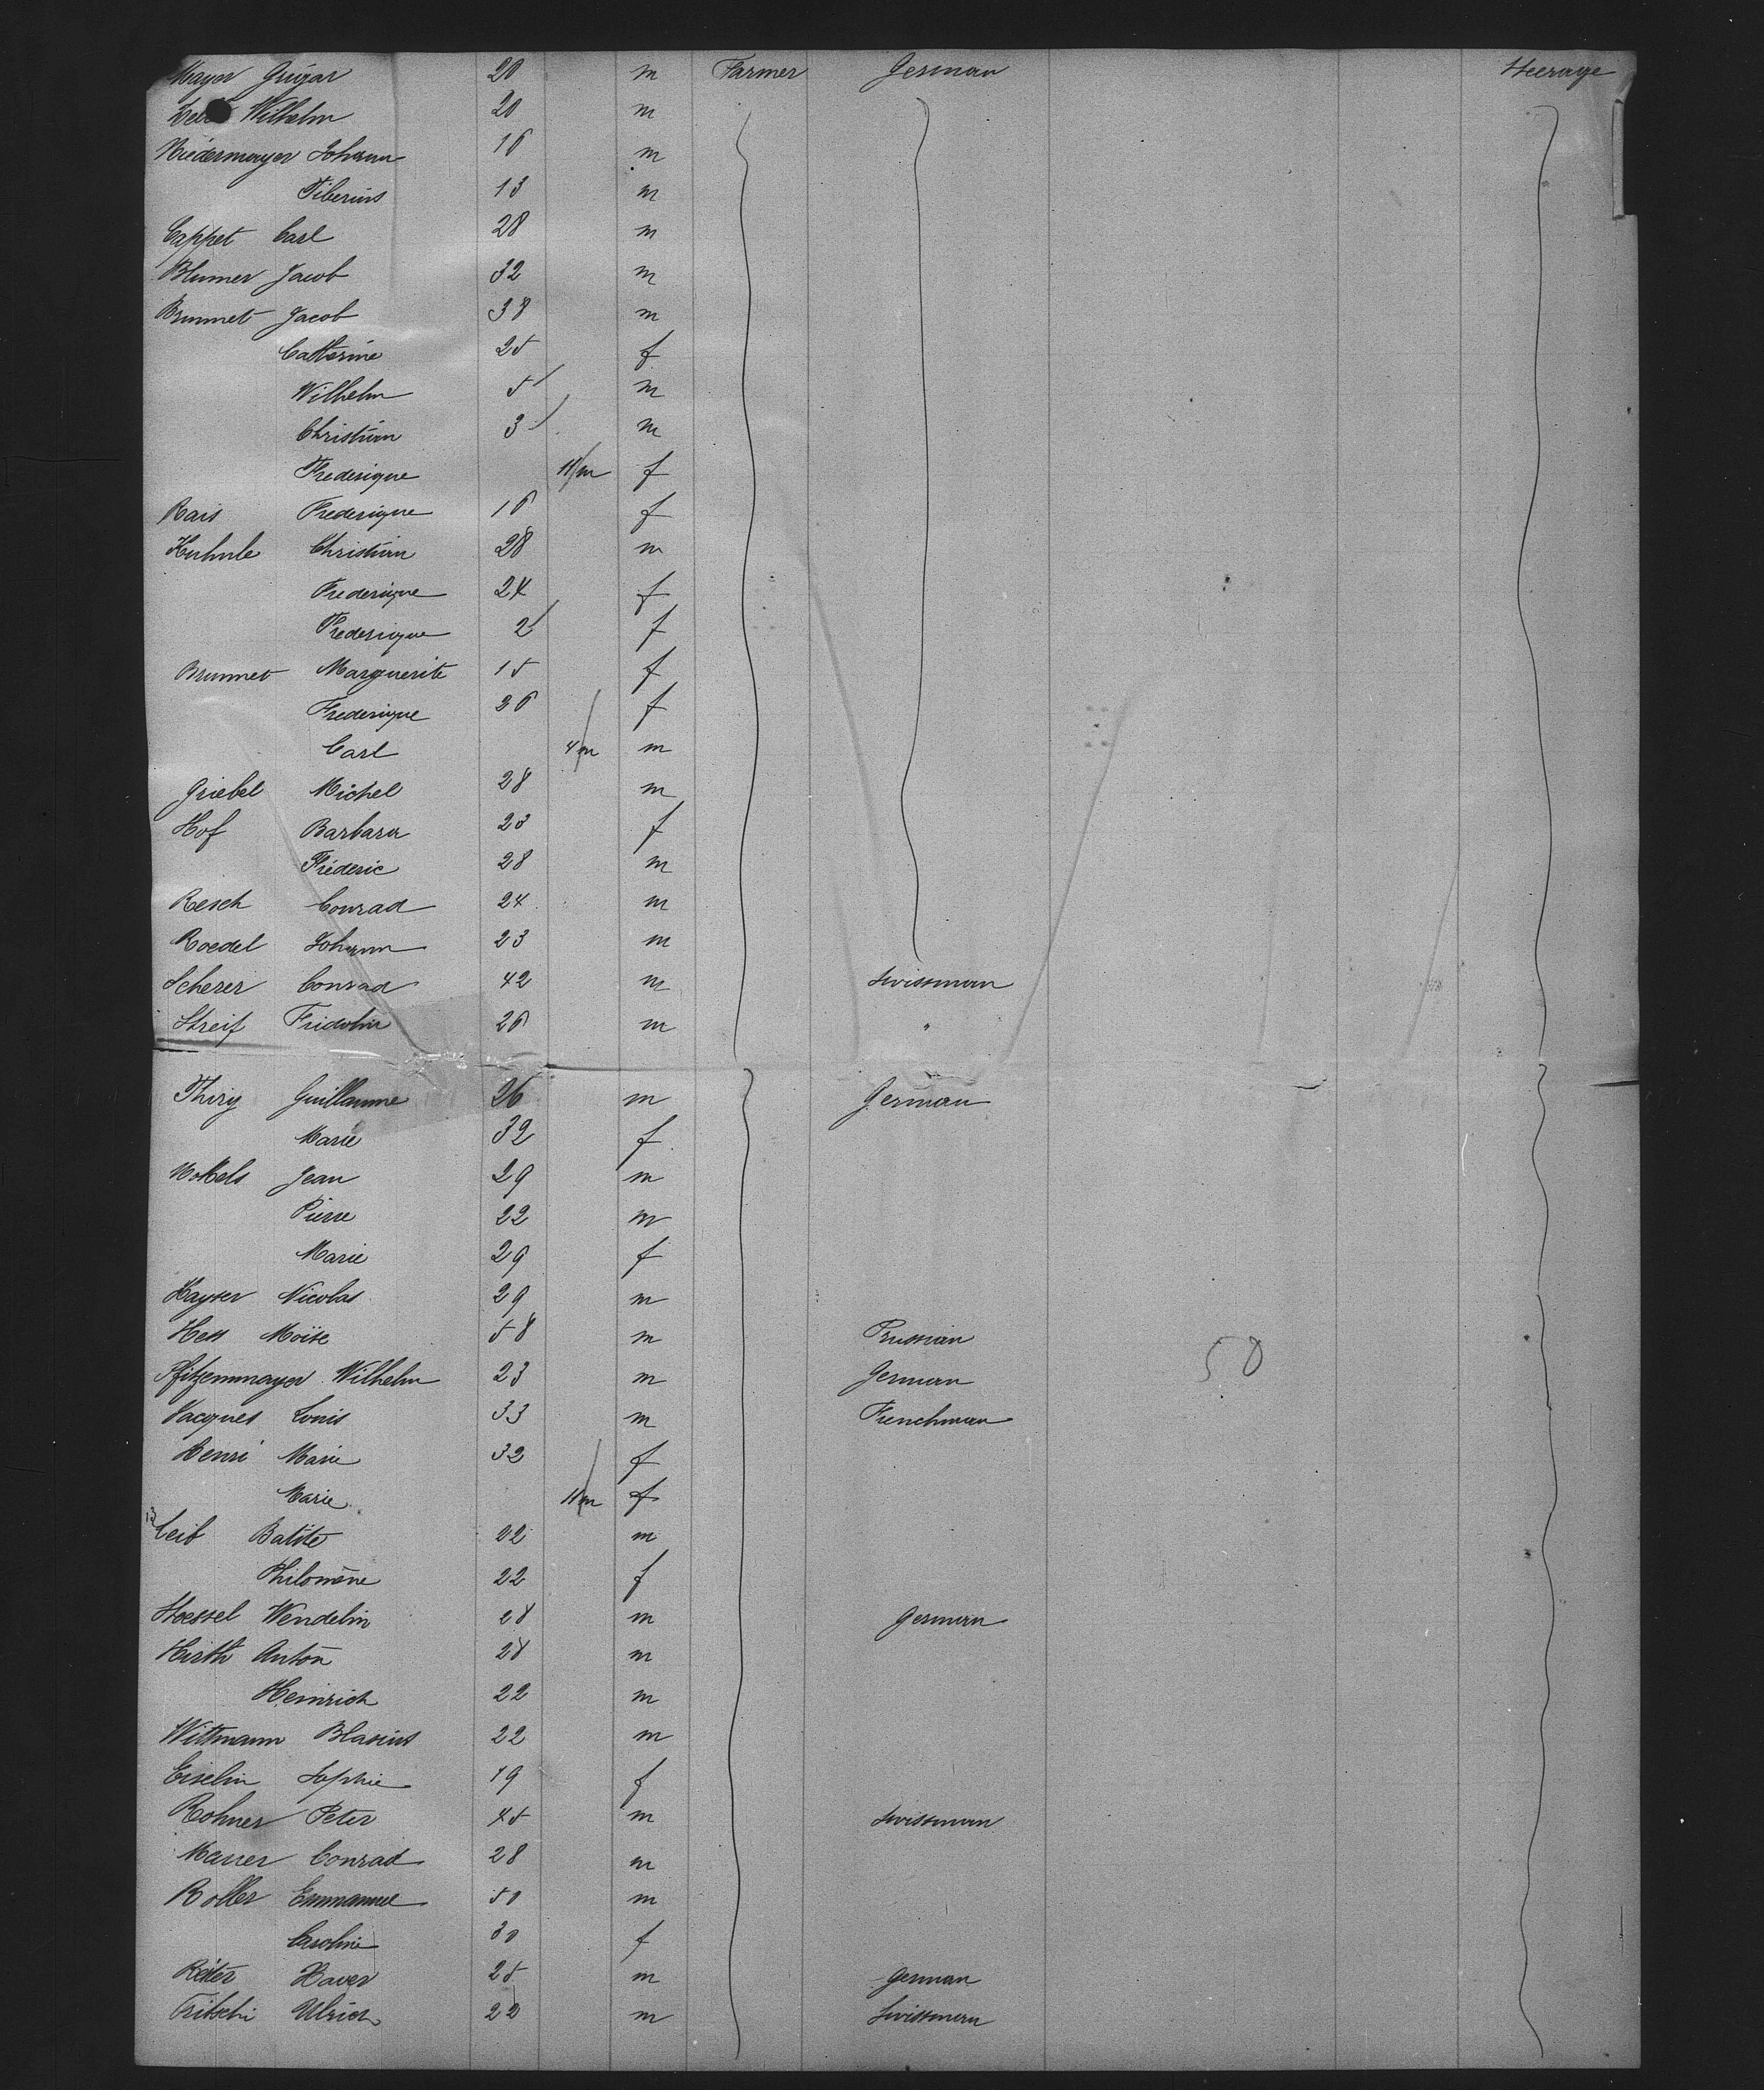 Mayer Grügor 20 m Farmer German Steerage
Wilhelm 20 m
Niedermayer Johann 16 m
Tiberius 13 m
Cappet Carl 28 m
Blumer Jacob 32 m
Brunnet Jacob 38 m
Catterine 25 f
Wilhelm 5 m
Christian 3 m
Frederique 11/m f
Rais Frederique 16 f
Huhnle Christian 28 m
Frederique 24 f
Frederique 2 f
Brunnet Marguerite 15 f
Frederique 26 f
Carl 4/m m
Griebel Michel 28 m
Hof Barbara 23 f
Fréderic 28 m
Resch Conrad 24 m
Roedel Johann 23 m
Scherer Conrad 42 m Swissman
Streif Fridolin 26 m "
Thiry Guillaume 26 m German
Marie 32 f
Jean 29 m
Pierre 22 m
Marie 29 f
Hayser Nicolas 29 m
Hess Moïse 58 m Prussian 50
Pfitzenmayer Wilhelm 23 m German
Jacques Louis 33 m Frenchman
Henri Marie 32 f
Marie 11/m f
Leib Batite 22 m
Philomène 22 f
Stoessel Wendelin 28 m German
Hirth Anton 28 m
Heinrich 22 m
Wittmann Blasius 22 m
Eiselin Sophie 19 f
Rohner Peter 45 m Swissman
Marrer Conrad 28 m
Roller Emmanuel 50 m
Caroline 30 f
Reiter Xaver 25 m German
Fritschi Ulrich 22 m Swissman